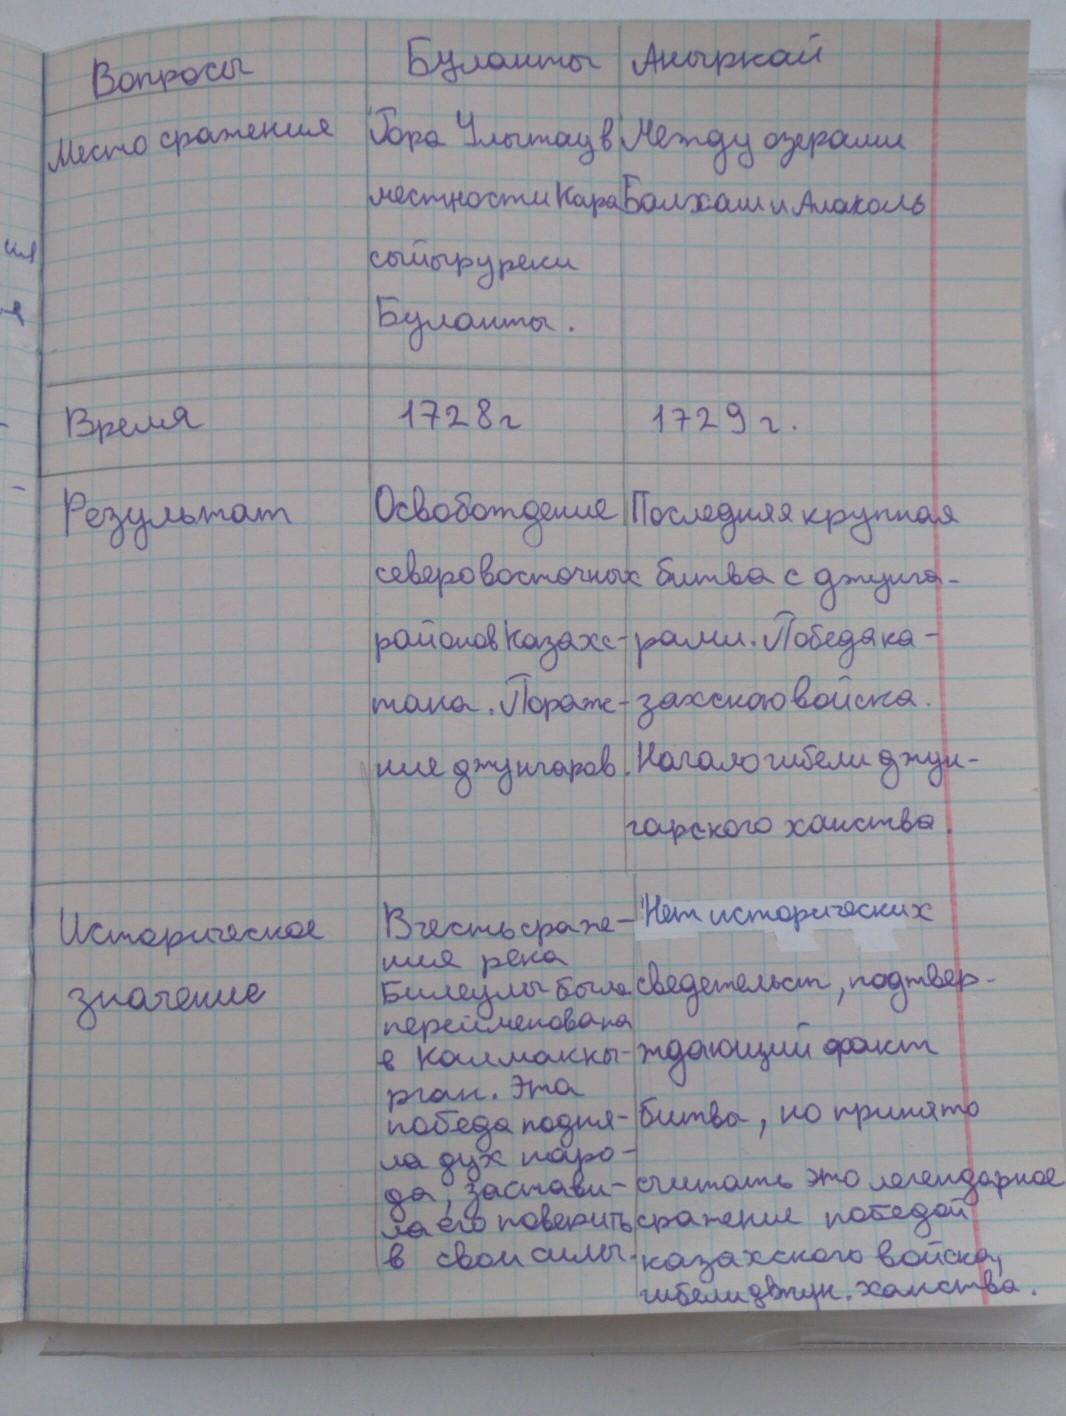 Вопросы
Буланты
Аныркай
Место сражения
Гора Улытау в
местности Кара
сыйыр у реки
Буланты.
Между озерами
Балхаш и Алаколь
Время
1728 г
1729 г.
Результат
Освобождение
северовосточных
районов Казахс-
тана. Пораж-
ние джунгаров.
Последняя крупная
битва с джунга-
рами. Победа ка-
захского войска.
Начало гибели джун-
гарского ханства.
Историческое
значение
В честь сраже-
ния река
Билеулы была
переименована
в Калмаккы-
рган. Эта
победа подня-
ла дух наро-
да, застави-
ла его поверить
в свои силы.
Нет исторических
сведетельст, подтвер-
ждающий факт
битвы, но принято
считать это легендарное
сражение победой
казахского войска,
гибели джун. ханства.